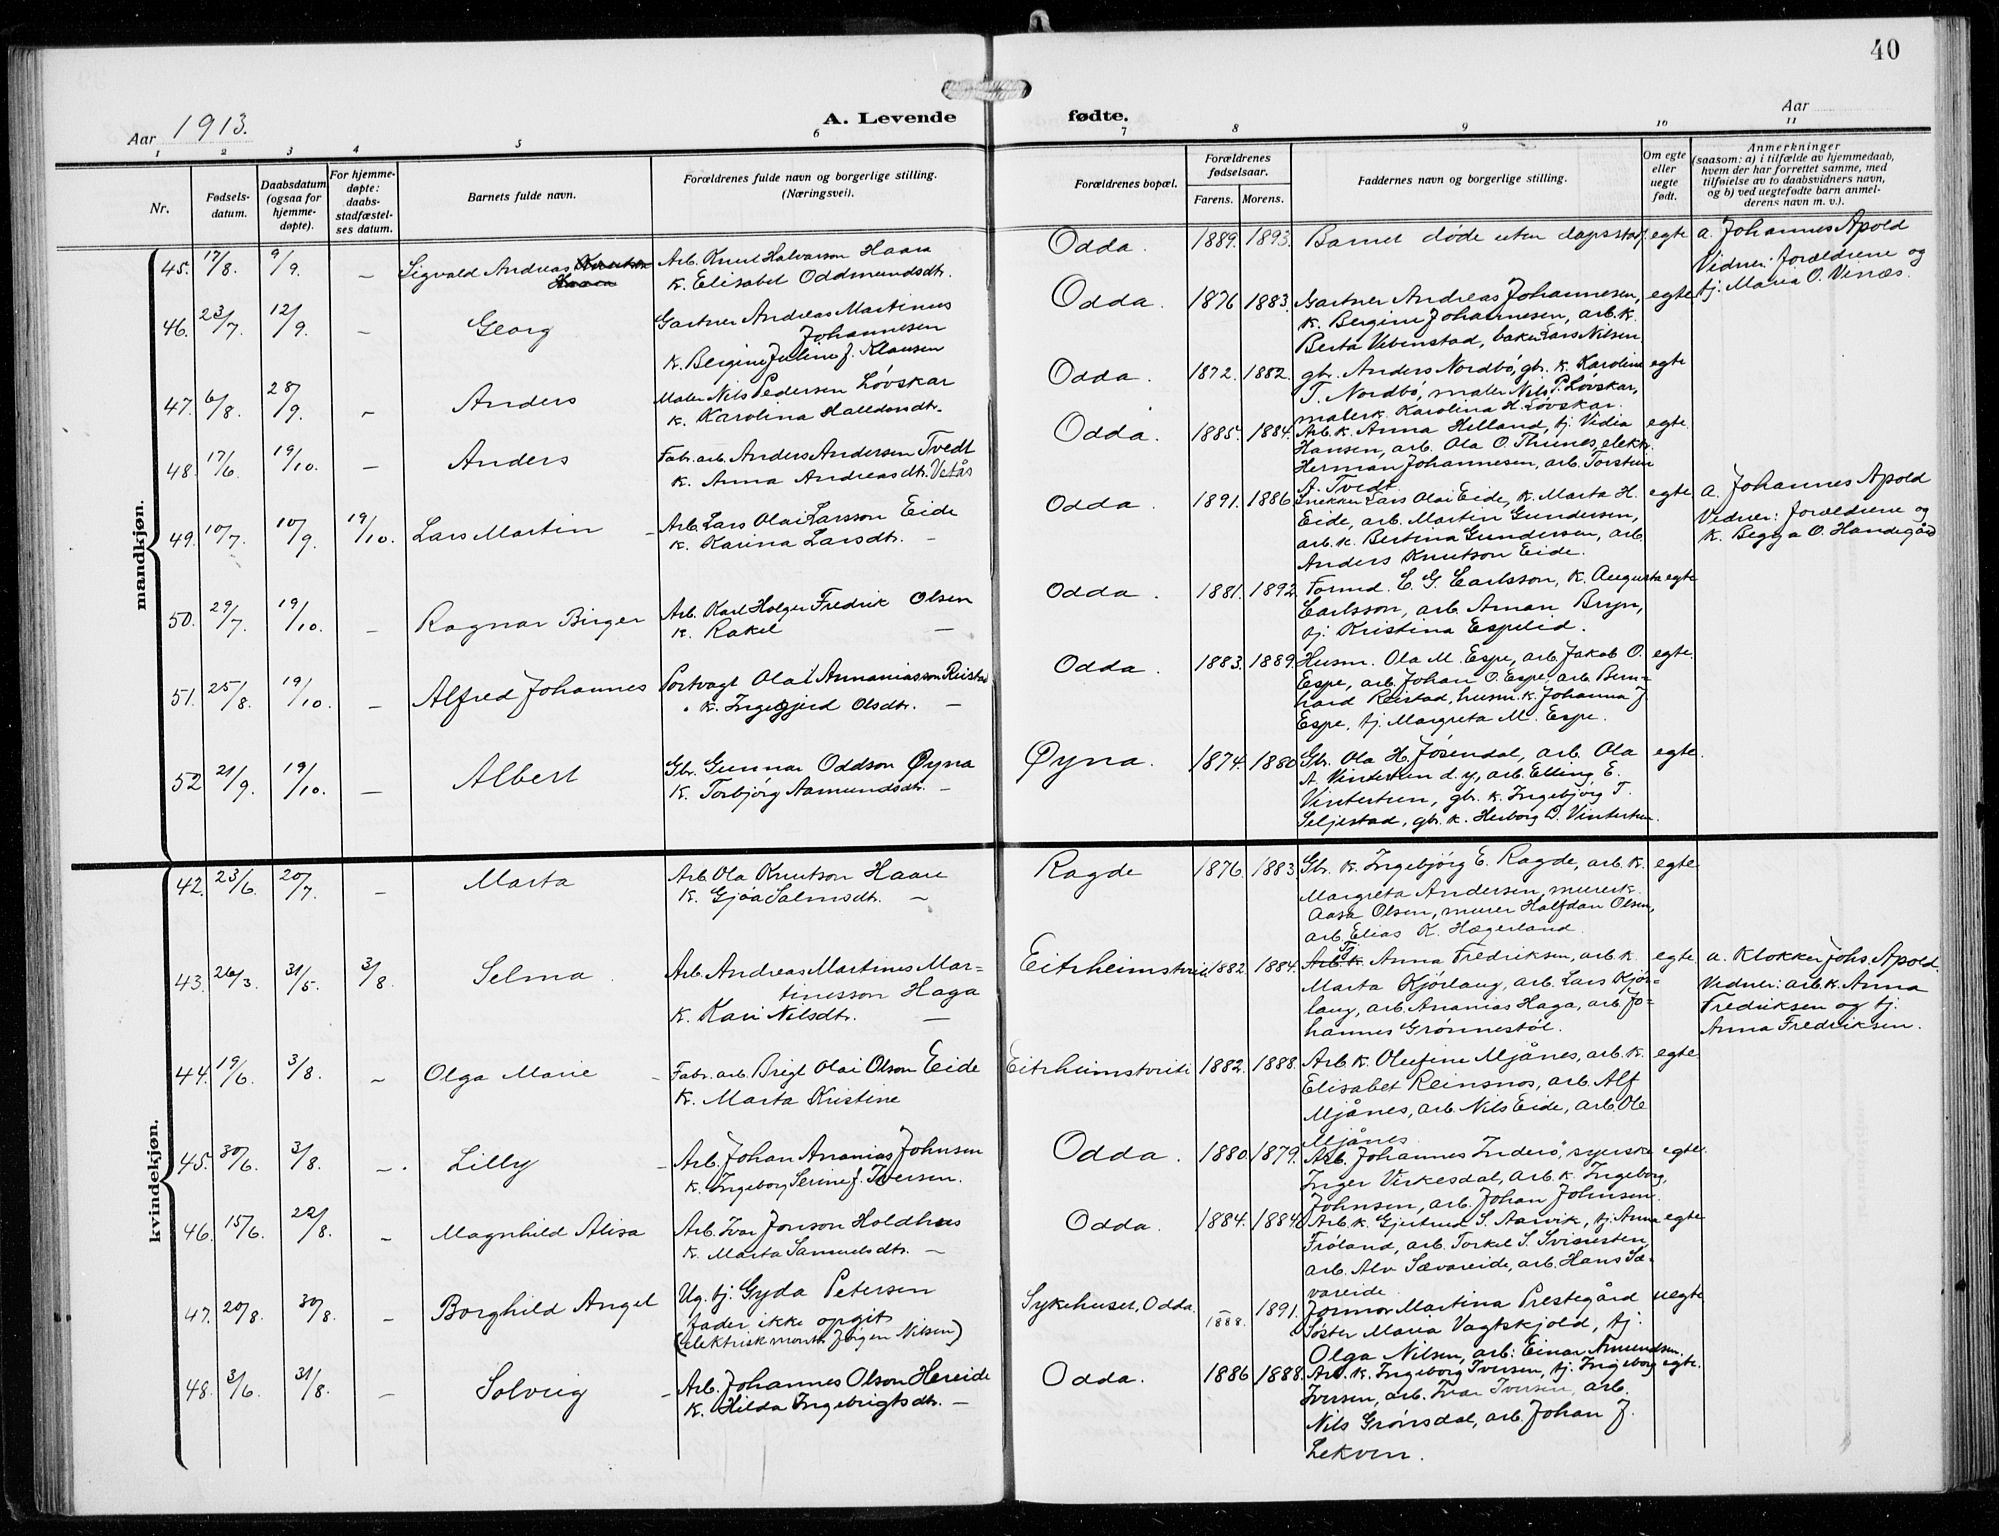 40
Aar 1913.
A. Levende fødte.
Aar
1 2 3 4 5 6 7 8 9 10 11
Nr.
Fødsels-
datum.
Daabsdatum
(ogsaa for
hjemme-
døpte).
For hjemme-
døpte:
daabs-
stadfæstel-
ses datum.
Barnets fulde navn.
Forældrenes fulde navn og borgerlige stilling.
(Næringsvei).
Forældrenes bopæl.
Forældrenes
fødselsaar.
Farens. Morens.
Faddernes navn og borgerlige stilling.
Om egte
eller
uegte
født.
Anmerkninger
(saasom: a) i tilfælde av hjemmedaab,
hvem der har forrettet samme, med
tilføielse av to daabsvidners navn,
og b) ved uegtefødte barn anmel-
derens navn m. v.).
mandkjøn.
45. 17/8. 9/9. – Sigvald Andreas Knutson
Haara
Arb. Knut Halvarson Haara
K. Elisabet Oddmundsdtr.
Odda. 1889. 1893. Barnet døde uten dapsstaf. egte
a. Johannes Apold
Vidner: forældrene og
tj. Maria O. Vinæs.
46. 23/7. 12/9. – Georg
Gartner Andreas Martinus
Johannesen
K. Bergine Juline f. Klausen
Odda. 1876 1883. Gartner Andreas Johannesen, egte
k. Bergine Johannesen, arb. k.
Berta Vibenstad, baker Lars Nilsen
47. 6/8. 28/9. – Anders
Maler Nils Pedersen Løvskar
K. Karolina Halldorsdtr.
Odda. 1872. 1882. gbr. Anders Nordbø, gbr. k. Karoline egte
T. Nordbø, maler Nils P. Løvskar,
malerk. Karolina H. Løvskar.
48. 17/6 19/10. – Anders
Fabr. arb. Anders Andersen Tvedt
K. Anna Andreasdtr. Vetås
Odda. 1885. 1884. Arb. k. Anna Helland, tj. Vidia egte
Hansen, arb. Ola O. Thunes, elektr.
Herman Johannesen, arb. Torstein
A. Tvedt.
49. 10/7. 10/9. 19/10. Lars Martin
Arb. Lars Olai Larsson Eide
K. Karina Larsdtr. –
Odda. 1891. 1886 Snekker Lars Olai Eide, k. Marta H. egte
Eide, arb. Martin Gundersen,
arb. k. Bertina Gundersen, arb.
Anders Knutson Eide.
a. Johannes Apold
Vidner: forældrene og
k. Begga O. Handegård
50. 29/7. 19/10. – Ragnar Birger
Arb. Karl Holger Fredrik Olsen
K. Rakel –
Odda. 1881. 1892. Formd. C. G. Carlsson, k. Augusta egte
Carlsson, arb. Aman Bryn,
tj. Kristina Espelid.
51. 25/8. 19/10. – Alfred Johannes
Portvagt Olai Annaniasson Reistad
K. Ingegjerd Olsdtr. –
Odda. 1883. 1889. Husm. Ola M. Espe, arb. Jakob O. egte.
Espe, arb. Johan O. Espe, arb. Bern-
hard Reistad, husm. k. Johanna J
Espe, tj. Margreta M. Espe.
52 21/9. 19/10. – Albert
Gbr. Gunnar Oddson Øyna
K. Torbjørg Aamundsdtr. –
Øyna. 1874. 1880 Gbr. Ola H. Jøsendal, arb. Ola egte.
A. Vintertun d.y., arb. Elling E.
Vintertun, gbr. k. Ingebjørg T.
Seljestad, gbr. k. Herborg D. Vintertun.
kvindekjøn.
42. 23/6. 20/7. – Marta
Arb. Ola Knutson Haare
K. Gjøa Salmsdtr. –
Ragde 1876. 1883 Gbr. k. Ingebjørg E. Ragde, arb. k. egte
Margreta Andersen, murerk.
Aasa Olsen, murer Halfdan Olsen,
arb. Elias K. Hægerland.
43. 26/3. 31/5. 3/8. Selma.
Arb. Andreas Martines Mar-
tinesson Haga
K. Kari Nilsdtr. –
Eitrheimstveit 1882. 1884. Arb. k. Tj. Anna Fredriksen, arb. k. egte
Marta Kjørlaug, arb. Lars Kjør-
laug, arb. Ananias Haga, arb. Jo-
hannes Grønnestøl.
a. Klokker Johs. Apold.
Vidner: arb. k. Anna
Fredriksen og tj.
Anna Fredriksen.
44. 19/6. 3/8. – Olga Marie –
Fabr. arb. Brigt Olai Olson Eide
K. Marta Kristine
Eitrheimstveit 1882. 1888. Arb. k. Olufine Mjånes, arb. k. egte
Elisabet Reinsnos, arb. Alf
Mjånes, arb. Nils Eide, arb. Ole
Mjånes.
45. 30/6. 3/8. – Lilly –
Arb. Johan Ananias Johnsen
K. Ingeborg Serine f. Iversen.
Odda. 1880. 1879. Arb. Johannes Inderø, syerske egte
Inger Virkesdal, arb. k. Ingeborg
Johnsen, arb. Johan Johnsen.
46. 15/6. 22/8. – Magnhild Alisa
Arb. Ivar Jonson Holdhus
K. Marta Samuelsdtr. –
Odda. 1884. 1884. Arb. k. Gjertrud S. Aarvik, tj. Anna egte
Frøland, arb. Torkel S. Svisresten
arb. Alv Sævareide, arb. Hans Sæ-
vareide.
47. 20/8. 30/8. – Borghild Angel
Ug. tj. Gyda Petersen
fader ikke opgit
(elektriskmontør Jørgen Nilsen)
Sykehuset, Odda. – 1888. 1891. Jormor Martina Prestegård uegte
Søster Maria Vagtskjold, tj.
Olga Nilsen, arb: Einar Amundsen.
48. 3/6. 31/8. – Solveig –
Arb. Johannes Olson Hereide
K. Hilda Ingebrigtsdtr. –
Odda. 1886 1888. Arb. k. Ingeborg Iversen, tj. Ingeborg egte.
Iversen, arb. Ivar Iversen, arb.
Nils Grønsdal, arb. Johan J.
Lekven.